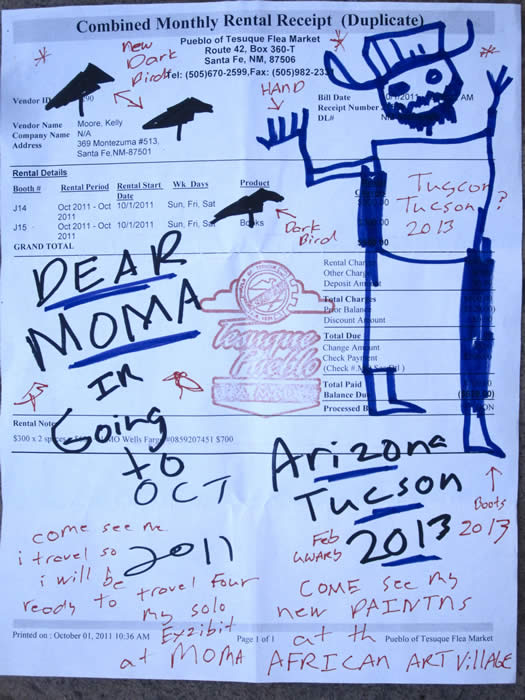 Combined Monthly Rental Receipt (Duplicate)
Pueblo of Tesuque Flea Market
Route 42, Box 360-T
Santa Fe, NM, 87506
Tel: (505)670-2599,Fax: (505)982-233
new
Dark
Birds
HAND
Vendor ID
Bill Date
AM
Receipt Number
DL#
Vendor Name Moore, Kelly
Company Name N/A
Address 369 Montezuma #513,
Santa Fe,NM-87501
Rental Details
Booth # Rental Period Rental Start Date Wk Days Product
J14 Oct 2011 - Oct 2011 10/1/2011 Sun, Fri, Sat
J15 Oct 2011 - Oct 2011 10/1/2011 Sun, Fri, Sat Books
GRAND TOTAL
Dark
Bird
Tuscon
Tucson ?
2013
DEAR
MOMA
IM
Going
to
OCT
2011
Tesuque
Pueblo
Rental Char
Other Charg
Deposit Am
Total Charges
Prior Balance
Discount Amount
Total Due
Change Amount
Check Payment
(Check #
Total Paid
Balance Due
Processed B
Rental Note
$300 x 2 spaces
MO Wells Fargo #0859207451 $700
Arizona
Tucson
2013
Feb
uWARY
Boots
2013
come see me
i travel so
i will be
ready to travel four
my solo
Exzibit
at MOMA
COME see my
new PAINTNS
at th
AFRICAN ART VILLAGE
Printed on : October 01, 2011 10:36 AM Page 1 of 1 Pueblo of Tesuque Flea Market